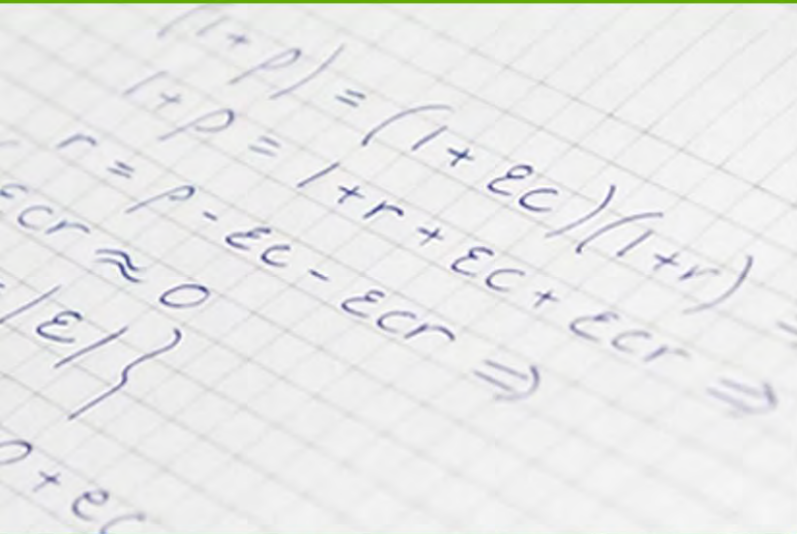 (1+p) = (1+εc)(1+r) =
1+p = 1+r+εc+εcr ⇒
r = p-εc-εcr ⇒
εcr ≈ 0
/ε/}
+ec